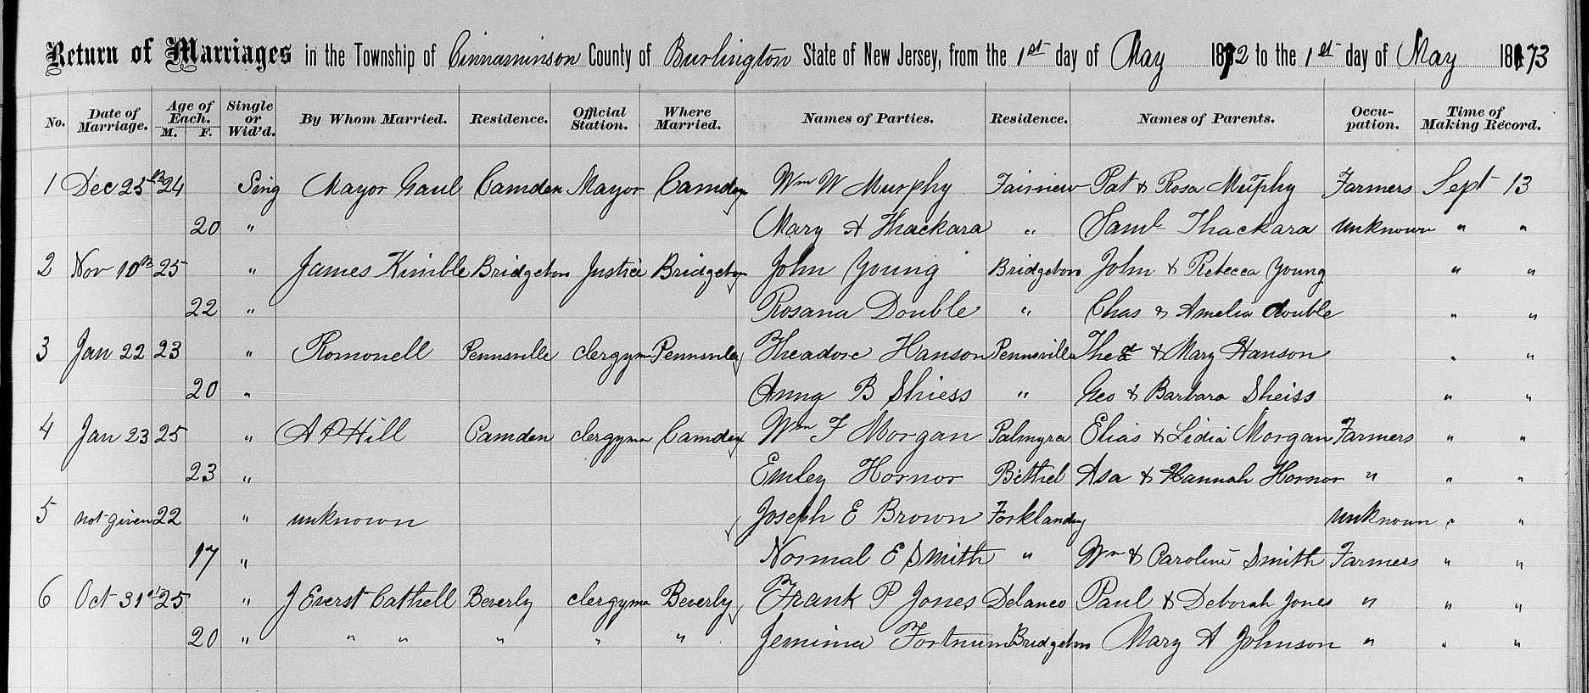 Return of Marriages in the Township of Cinnaminson County of Burlington State of New Jersey, from the 1st day of May 1872 to the 1st day of May 1873
No. Date of Marriage. Age of Each. M. F. Single or Wid'd. By Whom Married. Residence. Official Station. Where Married. Names of Parties. Residence. Names of Parents. Occupation. Time of Making Record.
1 Dec 25th 24 Sing Mayor Gaul Camden Mayor Camden Wm W Murphy Fairview Pat & Rosa Murphy Farmers Sept 13
20 " Mary A Thackara " Saml Thackara unknown " "
2 Nov 10th 25 " James Kimble Bridgeton Justice Bridgeton John Young Bridgeton John & Rebecca Young " "
22 " Rosana Double " Chas & Amelia double " "
3 Jan 22 23 " Romonell Pennsville clergym Pennsville Theadore Hanson Pennsville & Mary Hanson " "
20 " Anna B Shiess " Geo & Barbara Sheiss " "
4 Jan 23 25 " A P Hill Camden clergyma Camden Wm F Morgan Palmyra Elias & Lidia Morgan Farmers " "
23 " Emley Hornor Bethel Asa & Hannah Hornor " " "
5 not given 22 " unknown Joseph E Brown Forklanding unknown " "
17 " Normal E Smith " Wm & Caroline Smith Farmers " "
6 Oct 31st 25 " J Everst Cattell Beverly clergyma Beverly Frank P Jones Delanco Paul & Deborah Jones " " "
20 " " " " " " Jemima Fortnum Bridgeton Mary A Johnson " " "